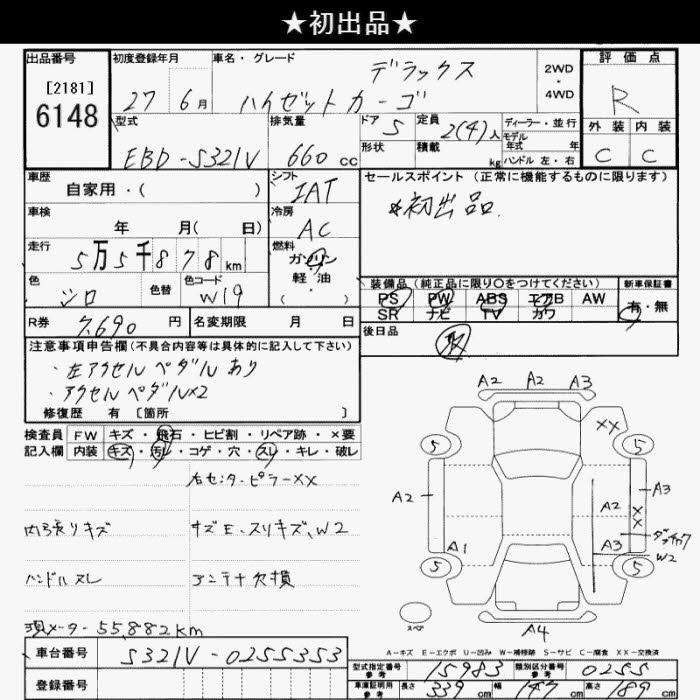 ★初出品★
出品番号
[2181]
6148
初度登録年月
27年6月
車名・グレード
デラックス
ハイゼットカーゴ
2WD
・
4WD
評価点
R
外装 内装
C C
型式
EBD-S321V
排気量
660 cc
ドア 5
形状
定員 2(4)人
積載 kg
ディーラー・並行
モデル
年式 年
ハンドル 左・右
車歴
自家用・( )
シフト
IAT
セールスポイント(正常に機能するものに限ります)
*初出品.
車検
年 月( 日)
冷房
AC
走行
5万5千878km
燃料
ガソリン
軽油
( ・ )
色
シロ
色替
色コード
W19
装備品(純正品に限り○をつけてください)
PS PW ABS エアB AW
SR ナビ TV カワ
新車保証書
有・無
R券
7,690円
名変期限 月 日
後日品
注意事項申告欄(不具合内容等は具体的に記入して下さい)
・左アクセルペダルあり
・アクセルペダル×2
修復歴 有 [箇所 ]
検査員
記入欄
FW キズ・飛石・ヒビ割・リペア跡・×要
内装 キズ・汚レ・コゲ・穴・スレ・キレ・破レ
右センターピラーXX
内張りキズ
キズE、スリキズ、W2
ハンドルスレ
アンテナ欠損
現メーター 55,882km
A2 A2 A3
XX
5 5
A2
A2
A3
X
X
A1
A3
W2
5 5
スペア
A4
A-キズ E-エクボ U-凹み W-補修跡 S-サビ C-腐食 XX-交換済
車台番号
S321V-0255353
登録番号
型式指定番号
参考
15983
類別区分番号
参考
0255
車庫証明用
参考
長さ 339 cm 幅 147 cm 高さ 189 cm